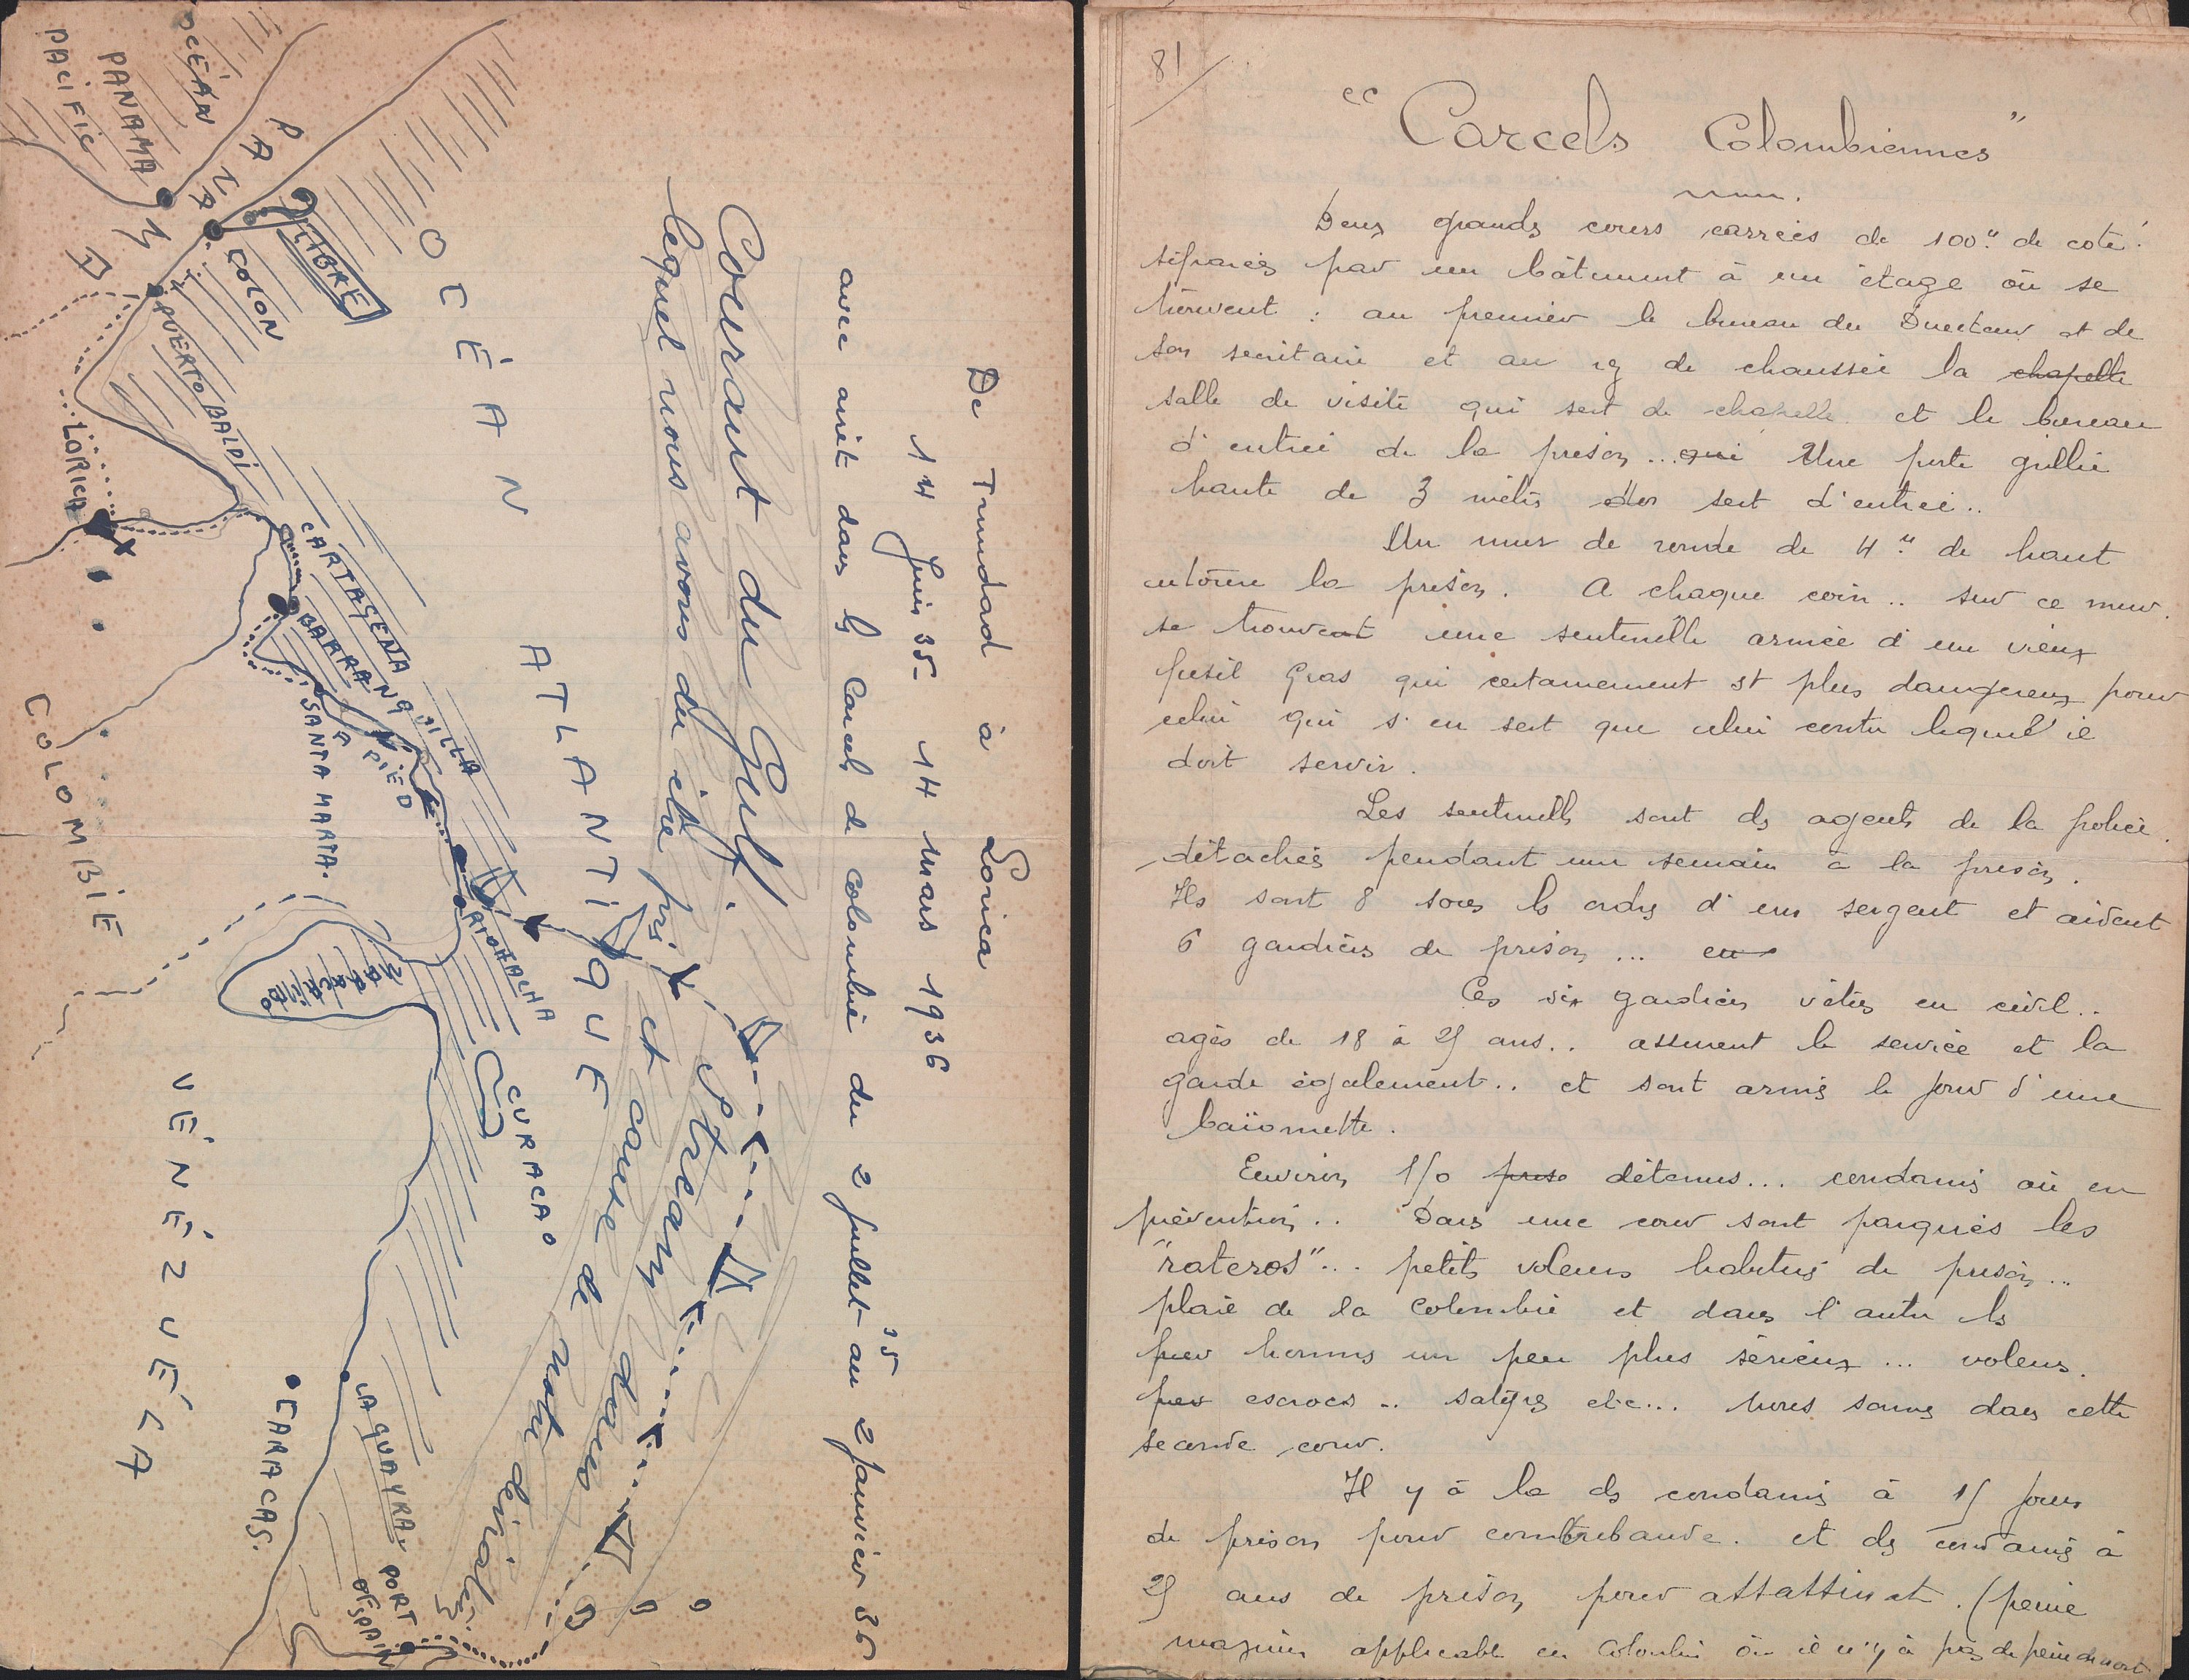 De Trinidad à Lorica
14 Juin 35 - 14 Mars 1936
avec arrêt dans les Carcels de Colombie du 2 Juillet 35 au 2 Janvier 36
Courant du Gulf Stream dans
lequel nous avons du être pris et cause de notre dérivée.
OCÉAN ATLANTIQUE
OCÉAN
PACIFIC
PANAMA
PANAMA
LIBRE
COLON
PUERTO BALDI
LORICA
CARTAGENA
BARRANQUILLA
A PIED
SANTA MARTA.
RIOHACHA
MARACAÏBO
CURACAO
COLOMBIE
VÉNÉZUÉLA
CARACAS.
LA GUAYRA
PORT
OF SPAIN
81
"Carcels Colombiennes"
Deux grands cours carrées de 100m de coté.
séparées par un bâtiment à un étage où se
trouvent : au premier le bureau du Directeur et de
son secrétaire et au rez de chaussée la chapelle
salle de visite qui sert de chapelle et le bureau
d'entrée de la prison... qui Une porte grillée
haute de 3 mètres sert d'entrée..
Un mur de ronde de 4m de haut
entoure la prison. A chaque coin.. sur ce mur.
se trouvent une sentinelle armée d'un vieux
fusil Gras qui certainement est plus dangereux pour
celui qui s'en sert que celui contre lequel il
doit servir.
Les sentinelles sont des agents de la police.
détachés pendant une semaine à la prison.
Ils sont 8 sous les ordres d'un sergent et aident
6 gardiens de prison... en
Ces six gardiens vêtus en civil..
agés de 18 à 25 ans.. assurent le service et la
garde également.. et sont armés le jour d'une
baïonnette.
Environ 150 priso détenus... condamnés où en
prévention.. Dans une cour sont parqués les
"rateros"... petits voleurs habitués de prison...
plaie de la Colombie et dans l'autre les
hommes un peu plus sérieux... voleurs.
escrocs.. satyres etc... Nous sommes dans cette
seconde cour.
Il y à la des condamnés à 15 jours
de prison pour contrebande. et des condamnés à
25 ans de prison pour assassinat. (peine
maximum applicable en Colombie où il n'y à pas de peine de mort